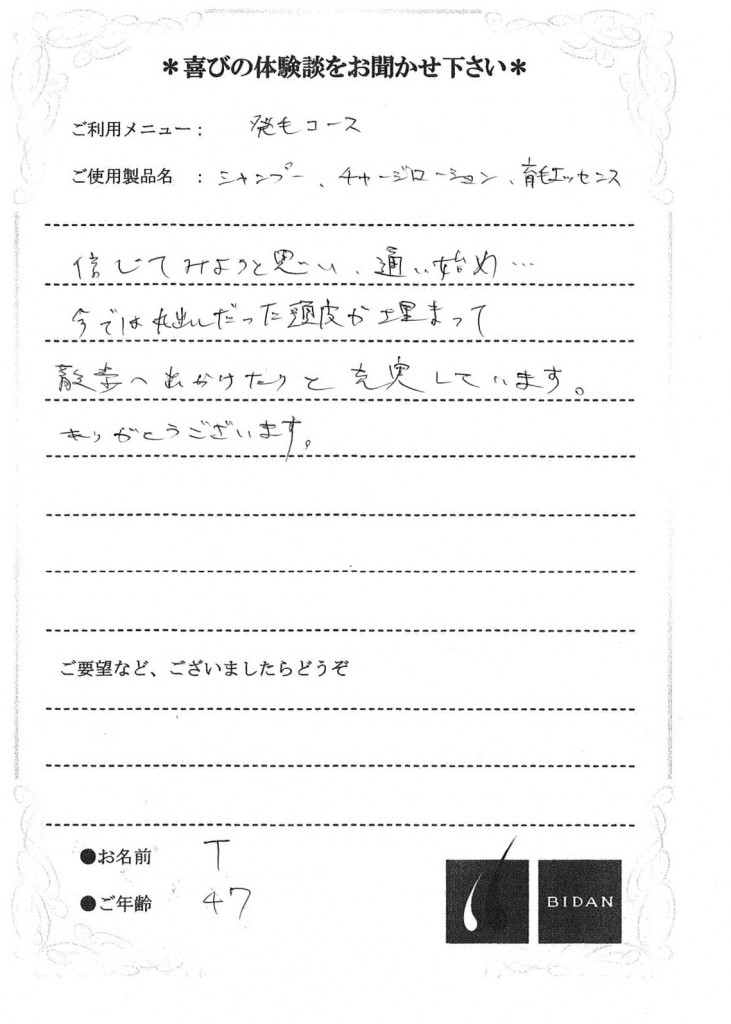 ＊喜びの体験談をお聞かせ下さい＊
ご利用メニュー： 発毛コース
ご使用製品名 ： シャンプー、チャージローション、育毛エッセンス
信じてみようと思い、通い始め…
今では丸出しだった頭皮が埋まって
散歩へ出かけたりと充実しています。
ありがとうございます。
ご要望など、ございましたらどうぞ
●お名前 T
●ご年齢 47
BIDAN